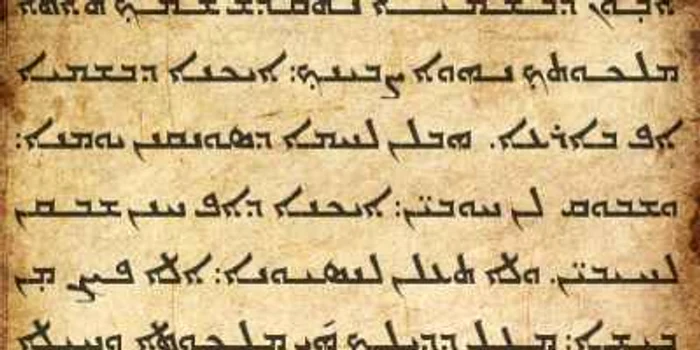 ܐܒܘܢ ܕܒܫܡܝܐ ܢܬܩܕܫ ܫܡܟ ܬܐܬܐ
ܡܠܟܘܬܟ ܢܗܘܐ ܨܒܝܢܟ: ܐܝܟܢܐ ܕܒܫܡܝܐ
ܐܦ ܒܐܪܥܐ. ܗܒ ܠܢ ܠܚܡܐ ܕܣܘܢܩܢܢ ܝܘܡܢܐ:
ܘܫܒܘܩ ܠܢ ܚܘܒ̈ܝܢ: ܐܝܟܢܐ ܕܐܦ ܚܢܢ ܫܒܩܢ
ܠܚܝܒ̈ܝܢ. ܘܠܐ ܬܥܠܢ ܠܢܣܝܘܢܐ: ܐܠܐ ܦܨܢ ܡܢ
ܒܝܫܐ: ܡܛܠ ܕܕܝܠܟ ܗܝ ܡܠܟܘܬܐ ܘܚܝܠܐ